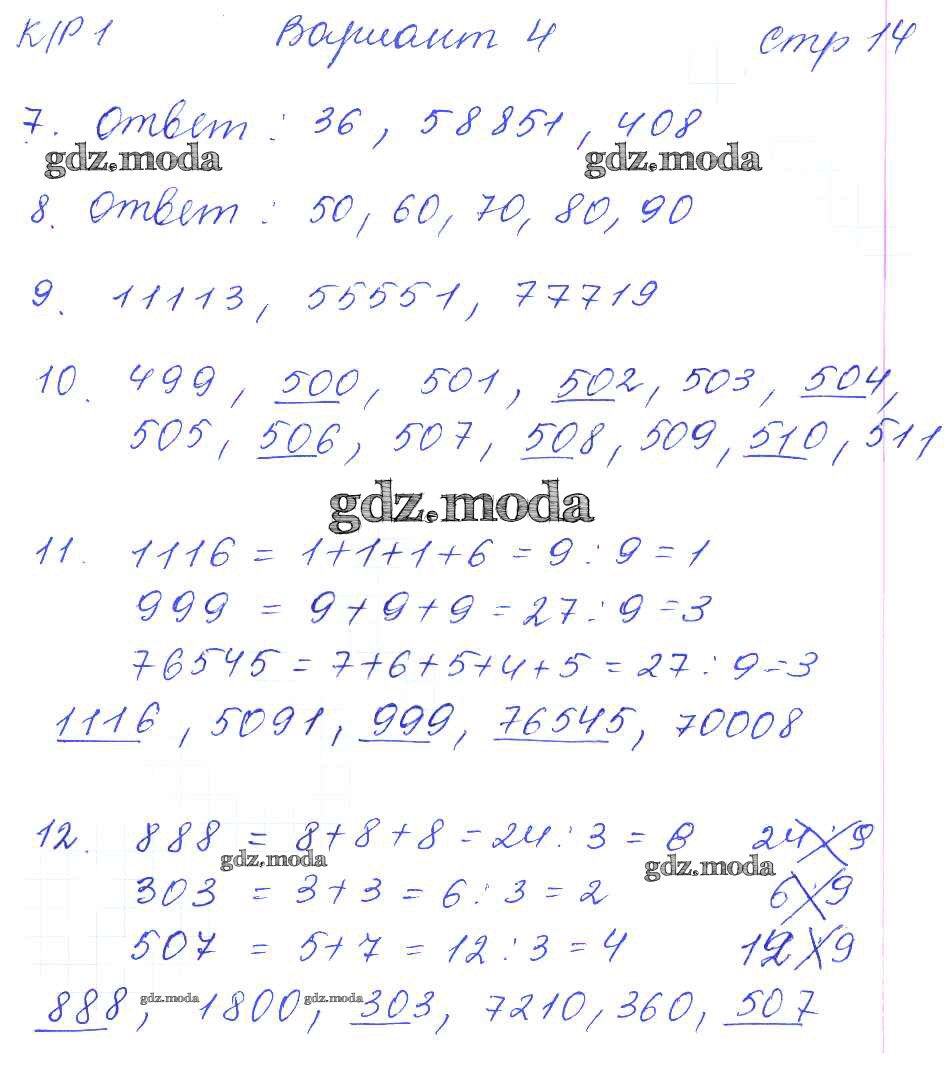 К/Р 1 Вариант 4 стр 14
7. Ответ : 36 , 58851 , 408
gdz.moda gdz.moda
8. Ответ : 50, 60, 70, 80, 90
9. 11113, 55551, 77719
10. 499, 500, 501, 502, 503, 504,
505, 506, 507, 508, 509, 510, 511
gdz.moda
11. 1116 = 1+1+1+6 = 9 : 9 = 1
999 = 9+9+9 = 27 : 9 = 3
76545 = 7+6+5+4+5 = 27 : 9 = 3
1116, 5091, 999, 76545, 70008
12. 888 = 8+8+8 = 24 : 3 = 8 24 : 9
gdz.moda gdz.moda
303 = 3+3 = 6 : 3 = 2 6 : 9
507 = 5+7 = 12 : 3 = 4 12 : 9
888, 1800, 303, 7210, 360, 507
gdz.moda gdz.moda